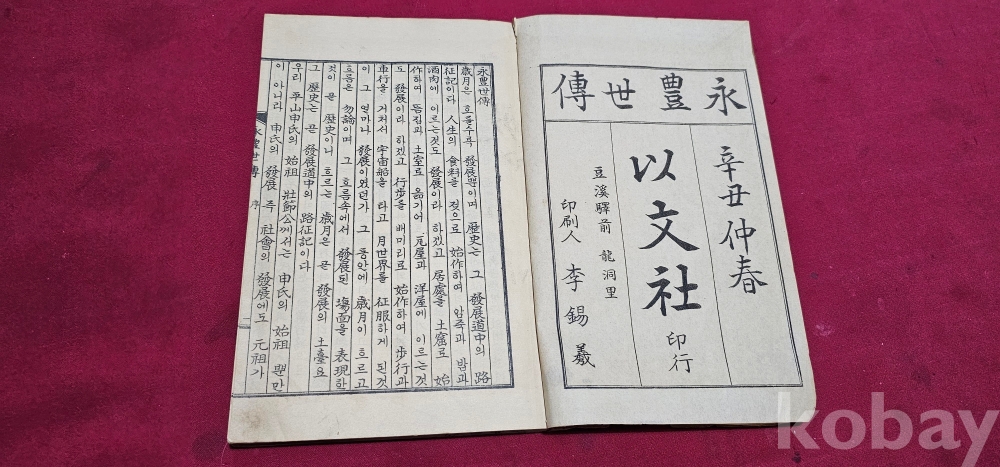 永豊世傳
辛丑仲春
以文社 印行
豆溪驛前 龍洞里
印刷人 李錫羲
永豊世傳
歲月은 흐를수록 發展뿐이며 歷史는 그 發展道中의 路
征記이다 人生의 食料를 젖으로 始作하여 암죽과 밤과
酒肉에 이르는것도 發展이라 하겠고 居處를 土窟로 始
作하여 움집과 土室로 옮기어 瓦屋과 洋屋에 이르는것
도 發展이라 하겠고 行步를 배미리로 始作하여 步行과
車行을 거쳐서 宇宙船을 타고 月世界를 征服하게 된것
이 그 얼마나 發展이였던가 그 동안에 歲月이 흐르고
흐름은 勿論이며 그 흐름속에서 發展된 場面을 表現한
것이 곧 歷史이니 흐르는 歲月은 곧 發展의 土臺요
그 歷史는 곧 發展道中의 路征記이다
우리 平山申氏의 始祖 壯節公께서는 申氏의 始祖 뿐만
이 아니라 申氏의 發展 즉 社會의 發展에도 元祖가
永豊世傳 序
kobay